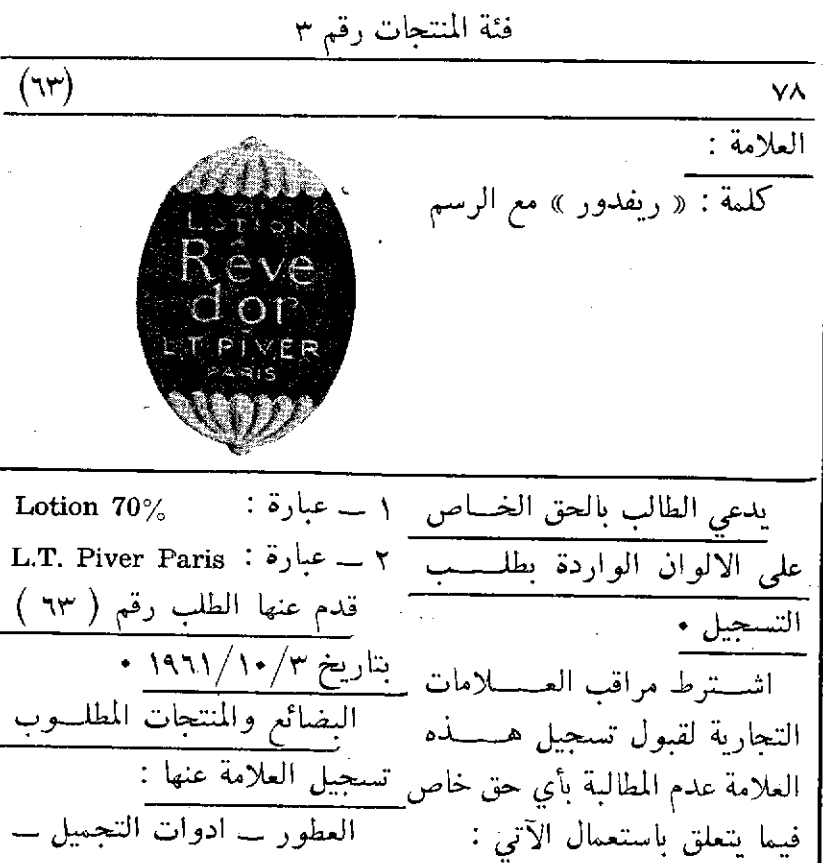 فئة المنتجات رقم ٣
٧٨
(٦٣)
العلامة :
كلمة : « ريفدور » مع الرسم
LOTION
Rêve
d'or
L.T. PIVER
PARIS
يدعي الطالب بالحق الخاص
على الالوان الواردة بطلب
التسجيل .
اشترط مراقب العلامات
التجارية لقبول تسجيل هذه
العلامة عدم المطالبة بأي حق خاص
فيما يتعلق باستعمال الآتي :
١ ــ عبارة : Lotion 70%
٢ ــ عبارة : L.T. Piver Paris
قدم عنها الطلب رقم ( ٦٣ )
بتاريخ ١٩٦١/١٠/٣ .
البضائع والمنتجات المطلوب
تسجيل العلامة عنها :
العطور ــ ادوات التجميل ــ